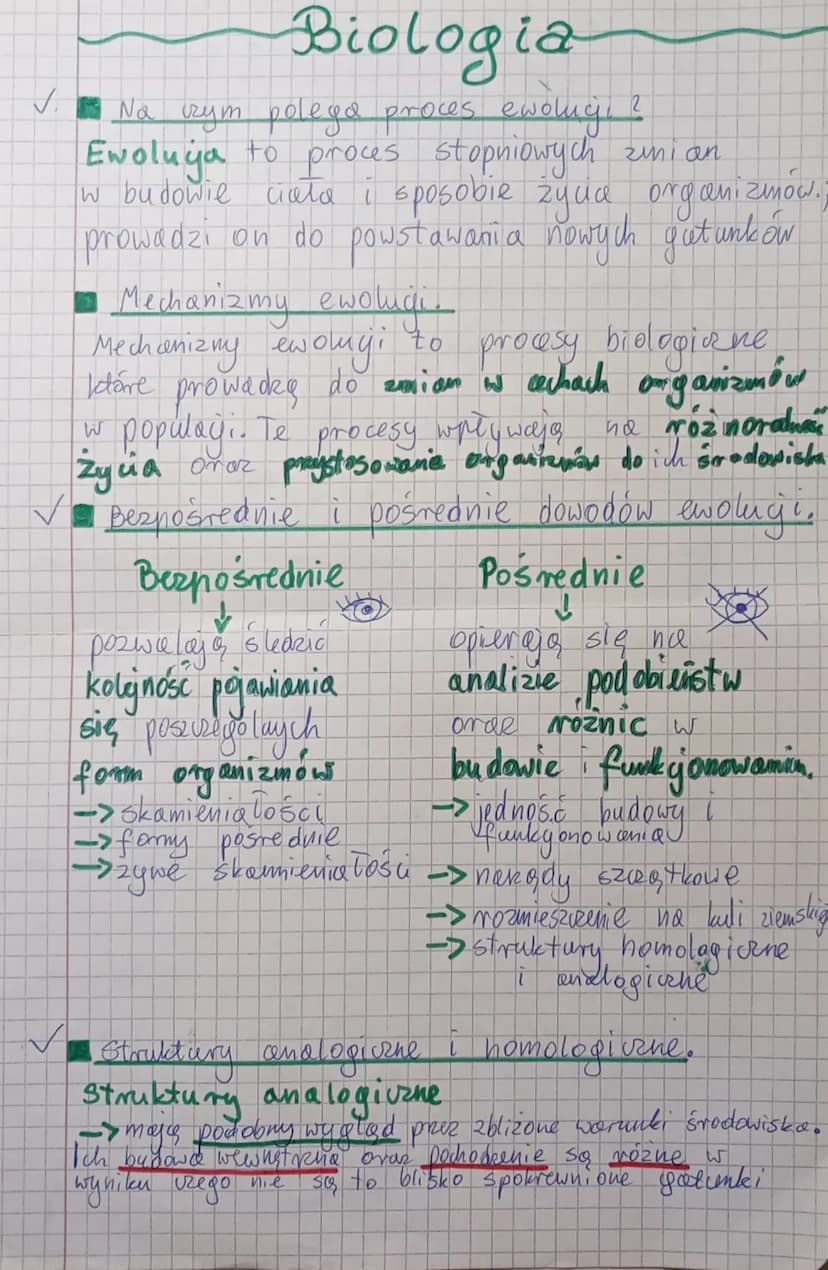 Biologia
Na czym polega proces ewolucji?
Ewolucja to proces stopniowych zmian
w budowie ciała i sposobie życia organizmów.;
prowadzi on do powstawania nowych gatunków
Mechanizmy ewolucji.
Mechanizmy ewolucji to procesy biologiczne,
które prowadzą do zmian w cechach organizmów
w populacji. Te procesy wpływają na różnorodność
życia oraz przystosowanie organizmów do ich środowiska
Bezpośrednie i pośrednie dowodów ewolucji.
Bezpośrednie Pośrednie
pozwalają śledzić
kolejność pojawiania
się poszczególnych
form organizmów
→ skamieniałości
→ formy pośrednie
→ żywe skamieniałości
opierają się na
analizie podobieństw
oraz różnic w
budowie i funkcjonowaniu.
→ jedność budowy i
funkcjonowania
→ narządy szczątkowe
→ rozmieszczenie na kuli ziemskiej
→ struktury homologiczne
i analogiczne
Struktury analogiczne i homologiczne.
Struktury analogiczne
→ mają podobny wygląd przez zbliżone warunki środowiska.
Ich budowa wewnętrzna oraz pochodzenie są różne w
wyniku czego nie są to blisko spokrewnione gatunki